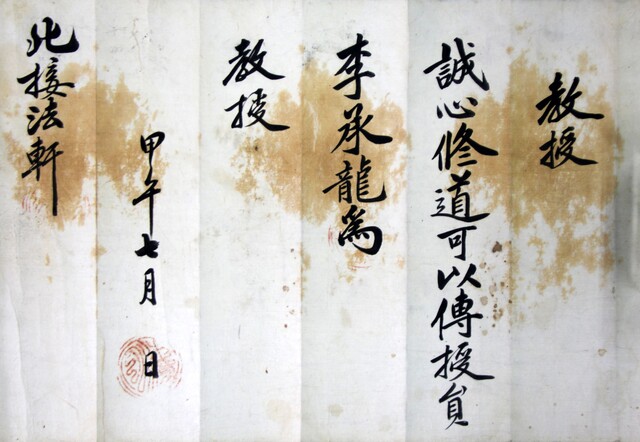 教授
誠心修道可以傳授員
李承龍爲
教授
甲午七月 日
北接法軒